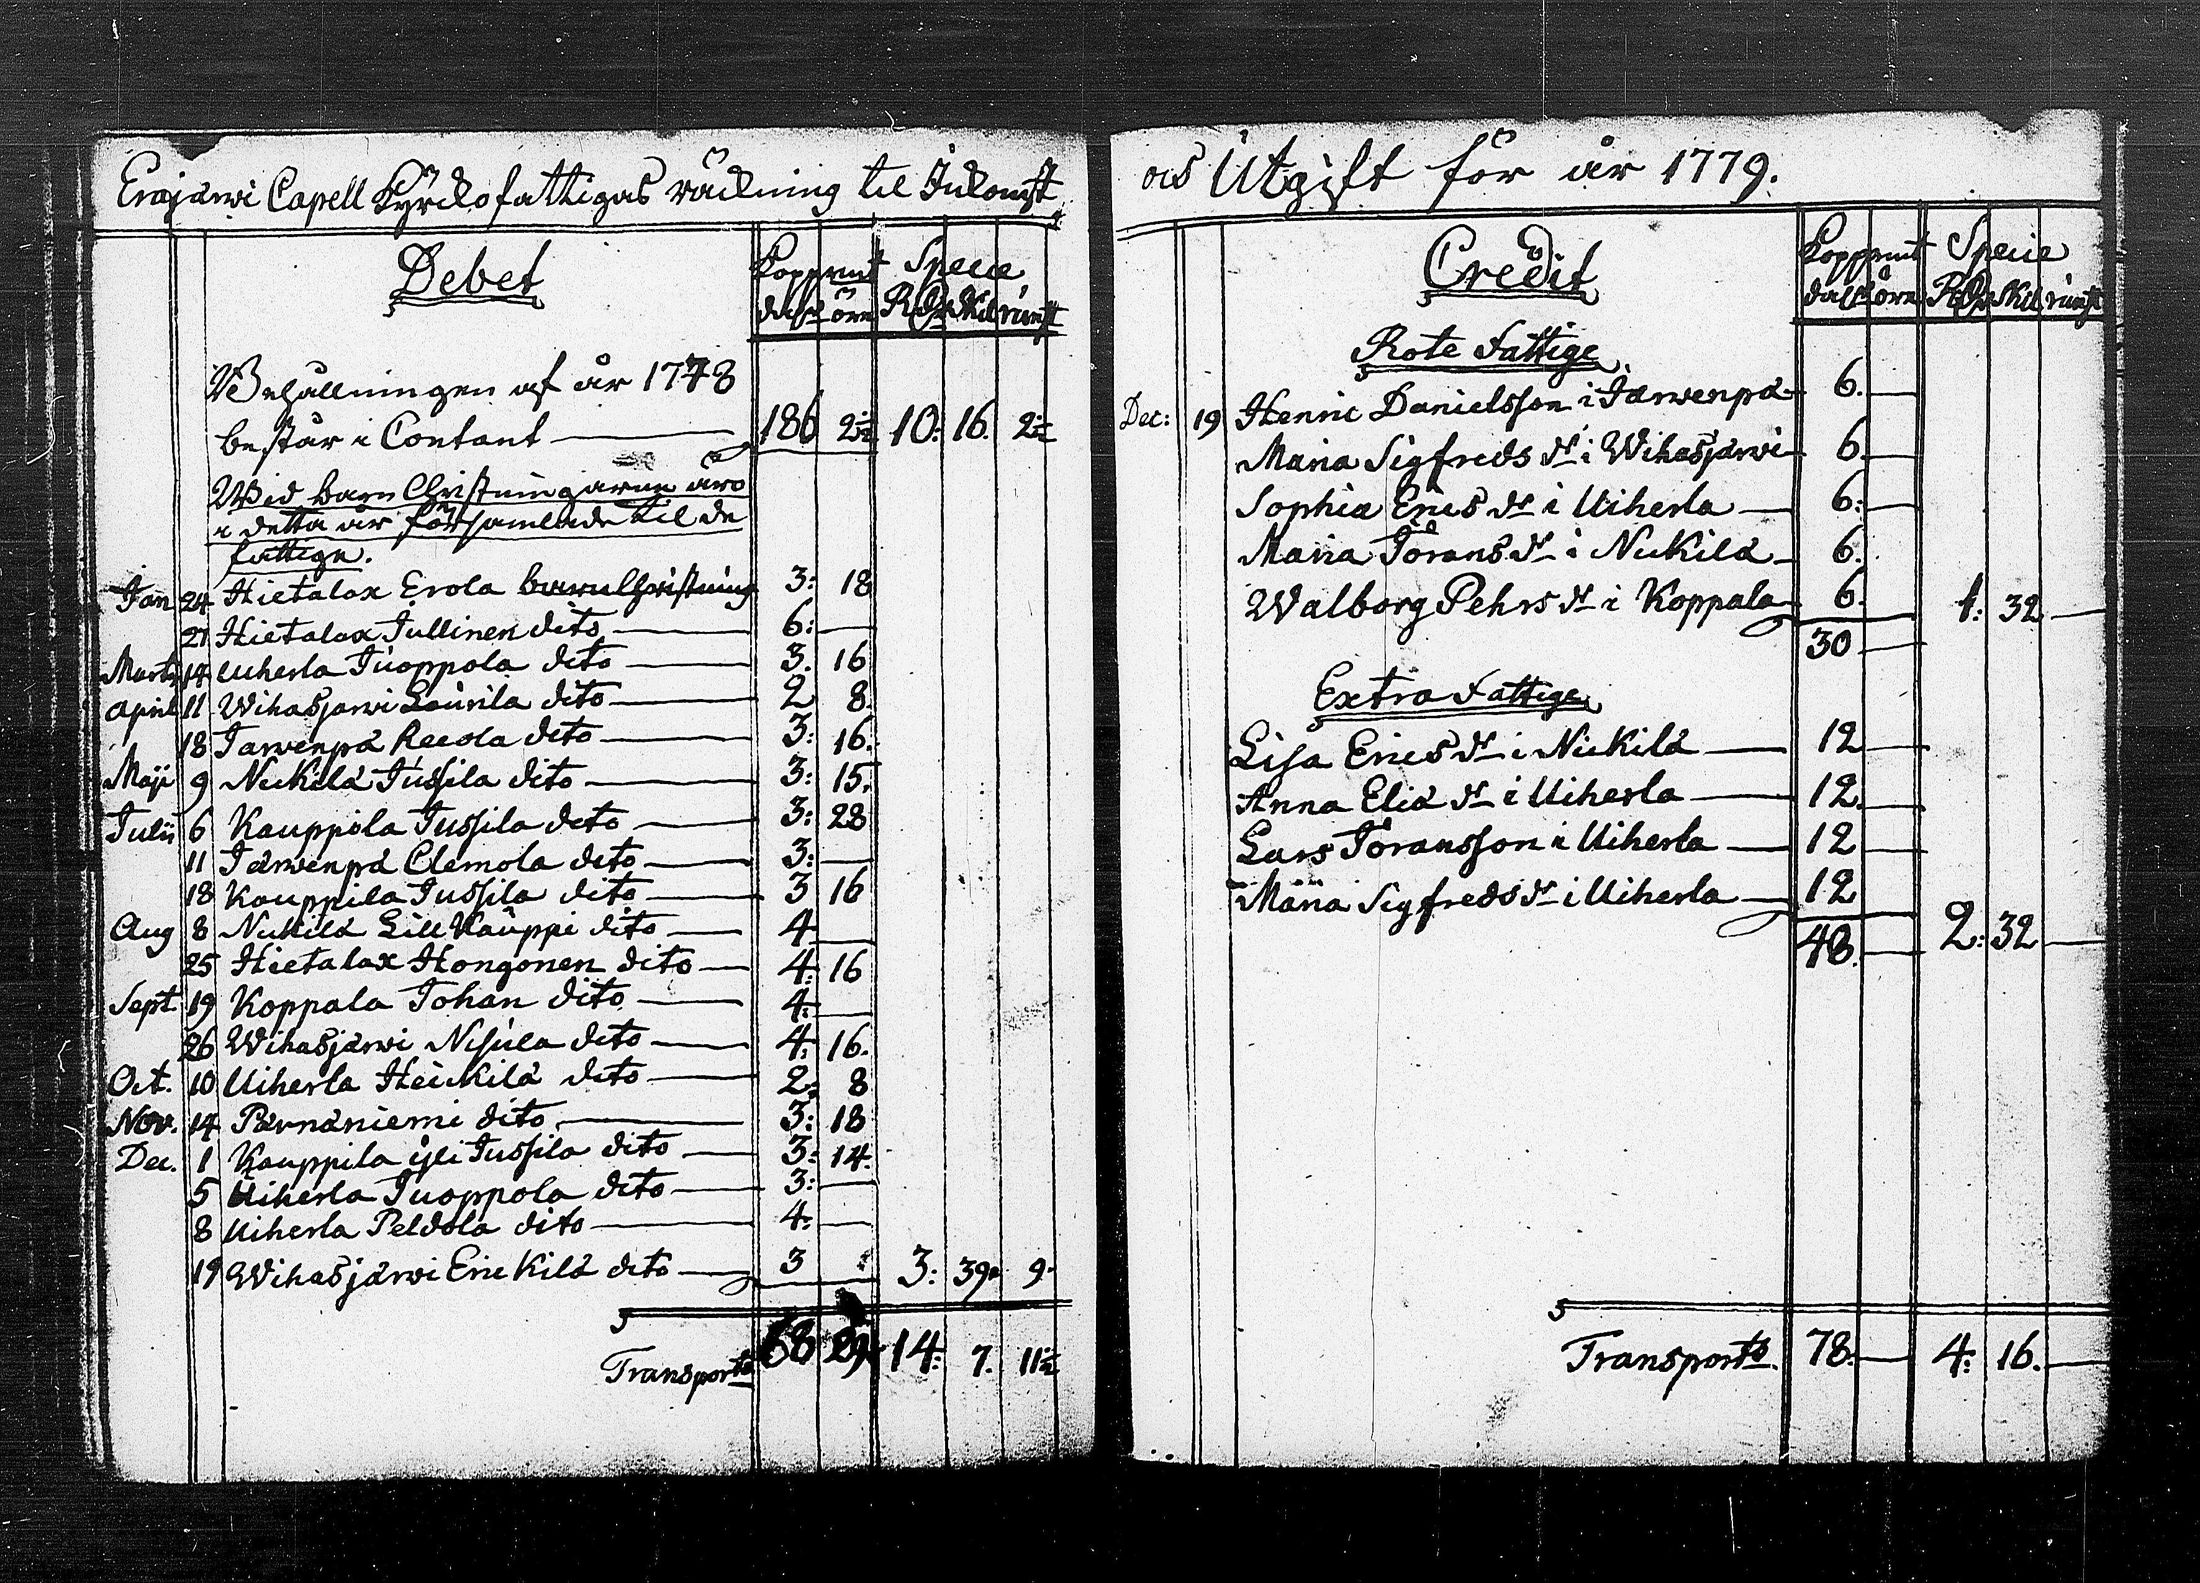 Erajärwi Capell Kyrckofattigas räckning til Inkomst
Debet
Kopp:mt Specie
dalr öre Rdr Skil runst
Behållningen af år 1778
består i Contant — 186 2½ 10: 16. 2½
Wid barn Christningarne äro
i detta år församlade til de
fattige.
Jan 24 Hietalax Erola barnChristning 3: 18
21 Hietalax Jullinen dito — 6: —
Marti 14 Uiherla Juoppola dito — 3. 16
April 11 Wihasjarwi Laurila dito — 2 8
18 Jarwenpä Recola dito — 3: 16.
Maji 9 Neckilä Jussila dito — 3: 15.
Julii 6 Kauppila Jussila dito — 3: 28
11 Järwenpä Clemola dito — 3: —
18 Kauppila Jussila dito — 3 16
Aug 8 Neckilä Lill Kauppi dito — 4 —
25 Hietalax Hongonen dito — 4: 16
Sept. 19 Koppala Johan dito — 4: —
26 Wihasjärwi Nisula dito — 4: 16.
Oct. 10 Uiherla Heickilä dito — 2: 8
Nov. 14 Pärnäniemi dito — 3: 18
Dec. 1 Kauppila yli Jussila dito — 3: 14.
5 Uiherla Juoppola dito — 3: —
8 Uiherla Peldola dito — 4: —
19 Wihasjärwi Erickilä dito — 3 3: 39. 9.
Transporto 68 29 14: 7. 11½
och Utgift för år 1779.
Credit
Kopp:mt Specie
dalr öre Rdr Skil runst
Rote Fattige
Dec: 19 Henric Danielsson i Järwenpä — 6. —
Maria Sigfreds dr i Wihasjärwi — 6. —
Sophia Erics dr i Uiherla — 6: —
Maria Jörans dr i Neckilä — 6.
Walborg Pehrs dr i Koppala — 6. — 1: 32 —
30 —
Extra Fattige
Lisa Erics dr i Neckilä — 12 —
Anna Eliä dr i Uiherla — 12. —
Lars Jöransson i Uiherla — 12 —
Maria Sigfreds dr i Uiherla — 12
48. — 2: 32 —
Transporto. 78. — 4: 16. —